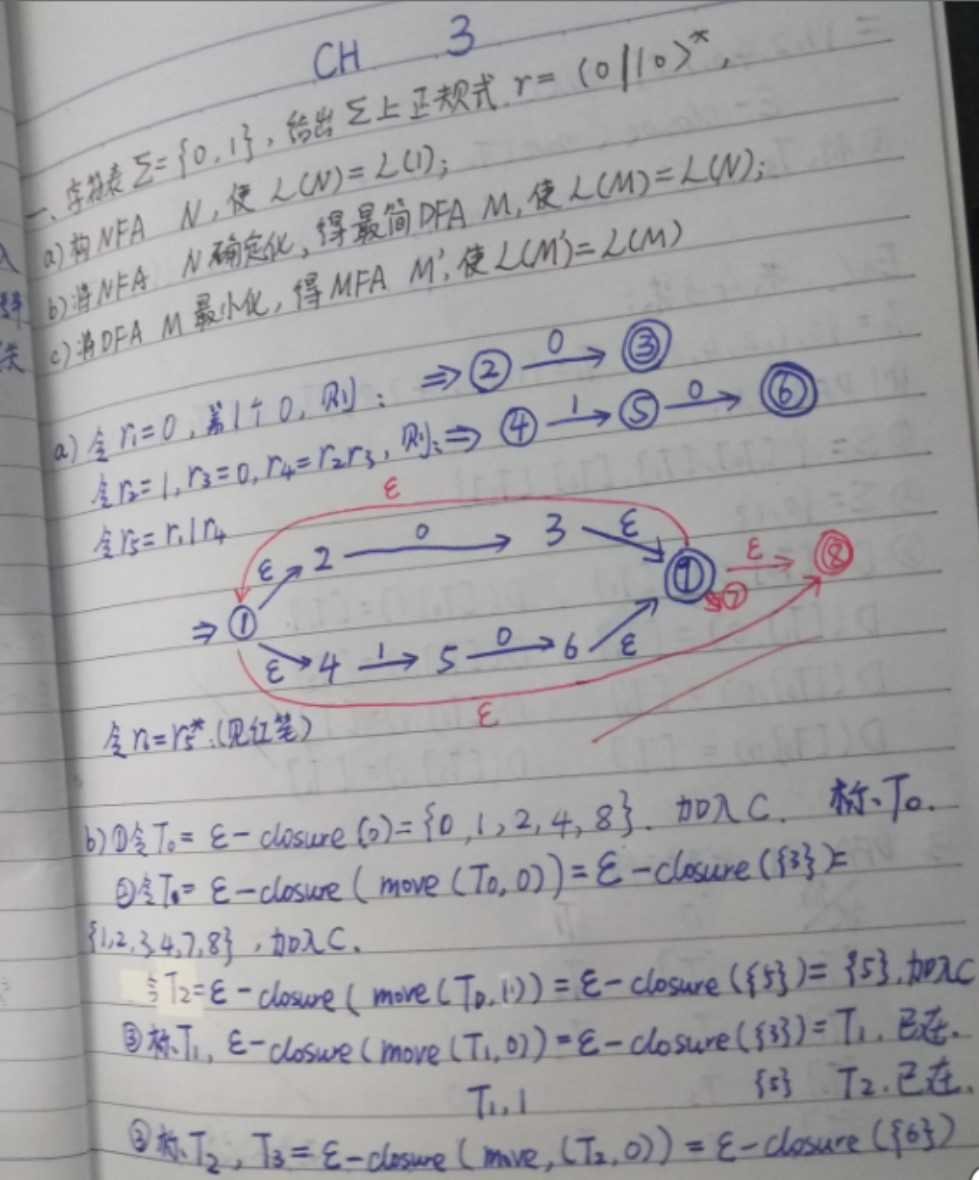 CH 3
一、字符表 Σ={0,1}, 给出 Σ上正规式 r=(0|10)*,
a) 构NFA N, 使 L(N)=L(1);
b) 将NFA N 确定化, 得最简DFA M, 使L(M)=L(N);
c) 将DFA M 最小化, 得MFA M', 使L(M')=L(M)
a) 令 r₁=0, 第1个0, 则: ⇒②—0→③
令r₂=1, r₃=0, r₄=r₂r₃, 则:⇒④—1→⑤—0→⑥
令r₅=r₁|r₄
ε
ε 2 0 3 ε
⇒① ε ⑧
⑦
ε 4 1 5 0 6 ε
ε
=r₅*.(见红笔)
b)①令T₀= ε-closure(0)={0,1,2,4,8}. 加入C. 标T₀.
②令 = ε-closure(move(T₀,0))=ε-closure({3})=
{1,2,3,4,7,8}, 加入C.
令T₂=ε-closure(move(T₀,1))=ε-closure({5})={5}.加入C
③标T₁, ε-closure(move(T₁,0))=ε-closure({3})=T₁.已在.
T₁,1 {5} T₂.已在.
③标T₂, T₃=ε-closure(move,(T₂,0))=ε-closure({6})